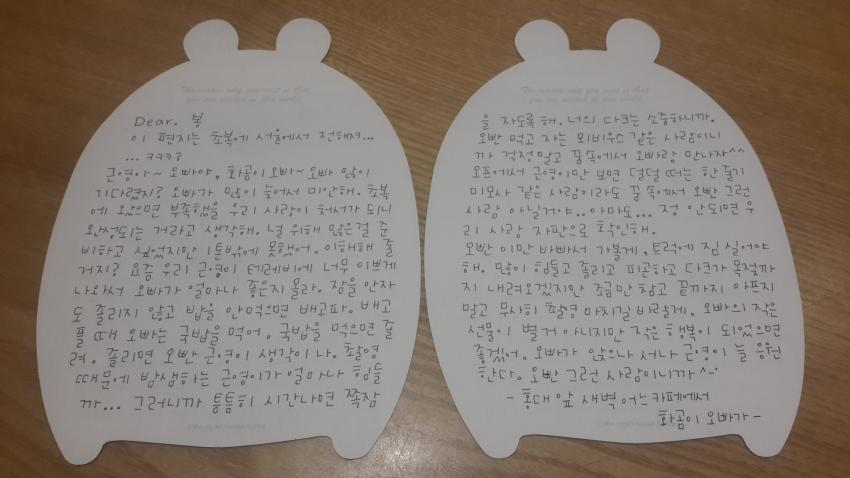 The reason why you exist is that
you are needed in this world
Dear. 봉
이 편지는 초복에 서울에서 전해져...
... ㅋㅋㅋ?
근영아~ 오빠야, 화곰이 오빠~ 오빠 많이
기다렸지? 오빠가 많이 늦어서 미안해. 초복
에 왔으면 부족했을 우리 사랑이 처서가 되니
완성되는 거라고 생각해. 널 위해 많은걸 준
비하고 싶었지만 1톤밖에 못했어. 이해해 줄
거지? 요즘 우리 근영이 터레비에 너무 이쁘게
나와서 오빠가 얼마나 좋은지 몰라. 잠을 안자
도 졸리지 않고 밥을 안먹으면 배고파. 배고
플 때 오빠는 국밥을 먹어. 국밥을 먹으면 졸
려. 졸리면 오빤 근영이 생각이 나. 촬영
때문에 밤새하는 근영이가 얼마나 힘들
까... 그러니까 틈틈히 시간나면 쪽잠
The reason why you exist is that
you are needed in this world
을 자도록 해. 너의 다크는 소중하니까.
오빤 먹고 자는 뫼비우스 같은 사람이니
까 걱정 말고 꿈속에서 오빠랑 만나자^^
오프에서 근영이만 보면 덜덜 떠는 한 줄기
미모사 같은 사람이라도 꿈 속에서 오빤 그런
사람 아닐거야.. 아마도... 정 안되면 우
리 사랑 자판으로 확인해.
오빤 이만 바빠서 가볼게, 트럭에 짐 실어야
해. 많이 힘들고 졸리고 피곤하고 다크가 목젖까
지 내려오겠지만 조금만 참고 끝까지 아프지
말고 무사히 촬영 마치길 바랄게. 오빠의 작은
선물이 별거 아니지만 작은 행복이 되었으면
좋겠어. 오빠가 앉으나 서나 근영이 늘 응원
한다. 오빤 그런 사람이니까 ^-^
- 홍대 앞 새벽 어느 카페에서
화곰이 오빠가 -